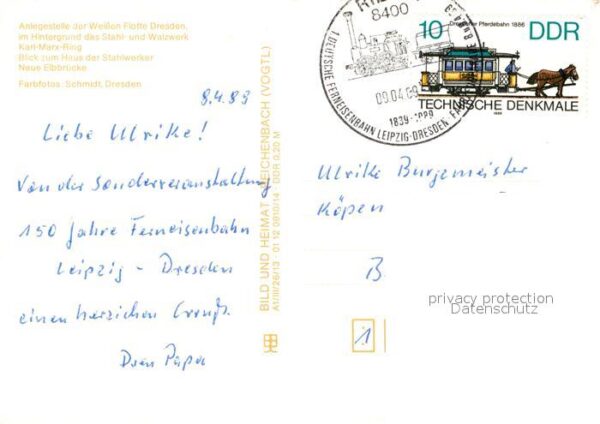 Anlegestelle der Weißen Flotte Dresden,
im Hintergrund das Stahl- und Walzwerk
Karl-Marx-Ring
Blick zum Haus der Stahlwerker
Neue Elbbrücke
Farbfotos: Schmidt, Dresden
9.4.89
Liebe Ulrike!
Von der Sonderveranstaltung
150 Jahre Ferneisenbahn
Leipzig - Dresden
einen herzlichen Gruß.
Dein Papa
BILD UND HEIMAT REICHENBACH (VOGTL)
A1/III/26/13 01 12 0910/14 DDR 0,20 M
8400
09.04.89
1839-1989
1. DEUTSCHE FERNEISENBAHN LEIPZIG-DRESDEN
10
Dresdner Pferdebahn 1886
DDR
TECHNISCHE DENKMALE
1986
Ulrike Burgemeister
B.
1
privacy protection
Datenschutz